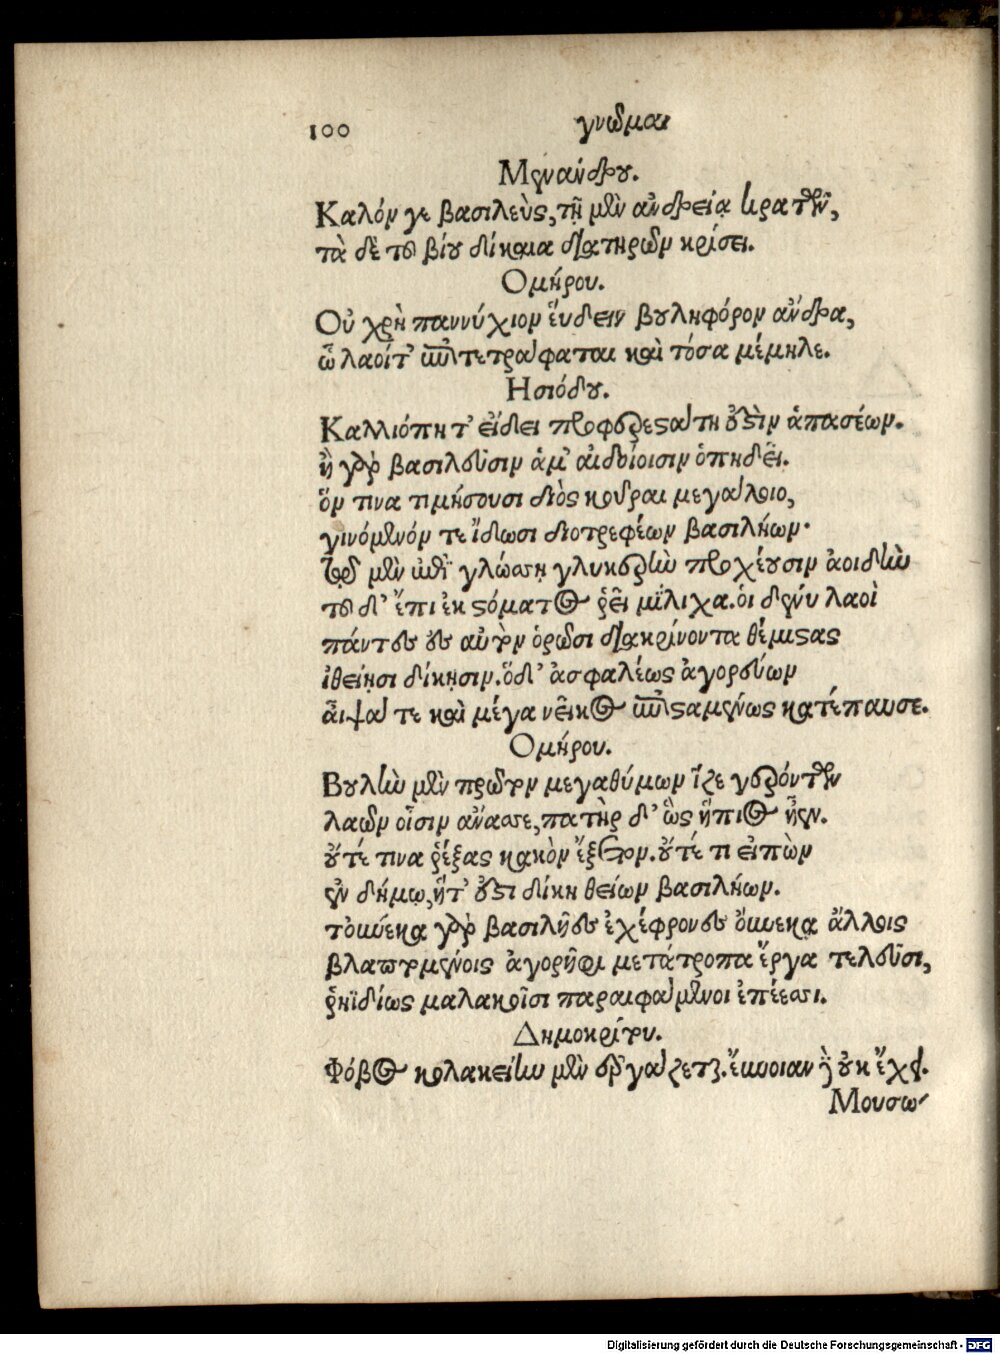 100 γνῶμαι
Μενάνδρου.
Καλόν γε βασιλεὺς, τῇ μὲν ἀνδρείᾳ κρατεῖν,
τὰ δὲ τοῦ βίου δίκαια διατηρῶν κρίσει.
Ομήρου.
Οὐ χρὴ παννύχιον ἕυδειν βουληφόρον ἄνδρα,
ὧ λαοίτ' ἐπιτετράφαται καὶ τόσα μέμηλε.
Ησιόδου.
Καλλιόπη τ' εἴδει προφερεστάτη οὖσιν ἁπασέων.
ἣ γὰρ βασιλεῦσιν ἅμ' αἰδοίοισιν ὁπηδεῖ.
ὅν τινα τιμήσουσι διὸς κοῦραι μεγάλοιο,
γινόμενόν τε ἴδωσι διοτρεφέων βασιλήων·
τῷ μὲν ἐπὶ γλώσσῃ γλυκερὴν προχέουσιν ἀοιδὴν
τοῦ δ' ἔπι ἐκ στόματος ῥεῖ μείλιχα. οἱ δένυ λαοὶ
πάντες ἐς αὐτὸν ὁρῶσι διακρίνοντα θέμιστας
ἰθείῃσι δίκῃσιν. ὅδ' ἀσφαλέως ἀγορεύων
αἶψά τε καὶ μέγα νεῖκος ἐπισταμένως κατέπαυσε.
Ομήρου.
Βουλὴν μὲν πρῶτον μεγαθύμων ἷζε γερόντων
λαῶν οἷσιν ἄνασσε, πατὴρ δ' ὣς ἤπιος ἦεν.
οὔτέ τινα ῥέξας κακὸν ἔξοχον. οὔτέ τι εἰπὼν
ἐν δήμῳ, ἥτ' ἐστὶ δίκη θείων βασιλήων.
τοὔνεκα γὰρ βασιλῆες ἐχέφρονες οὕνεκα ἄλλοις
βλαπτομένοις ἀγορῆφι μετάτροπα ἔργα τελεῦσι,
ῥηϊδίως μαλακοῖσι παραιφάμενοι ἐπέεσσι.
Δημοκρίτου.
Φόβος κολακείην μὲν ἐργάζεται. ἔυνοιαν δὲ οὐκ ἔχει.
Μουσω-
Digitalisierung gefördert durch die Deutsche Forschungsgemeinschaft - DFG